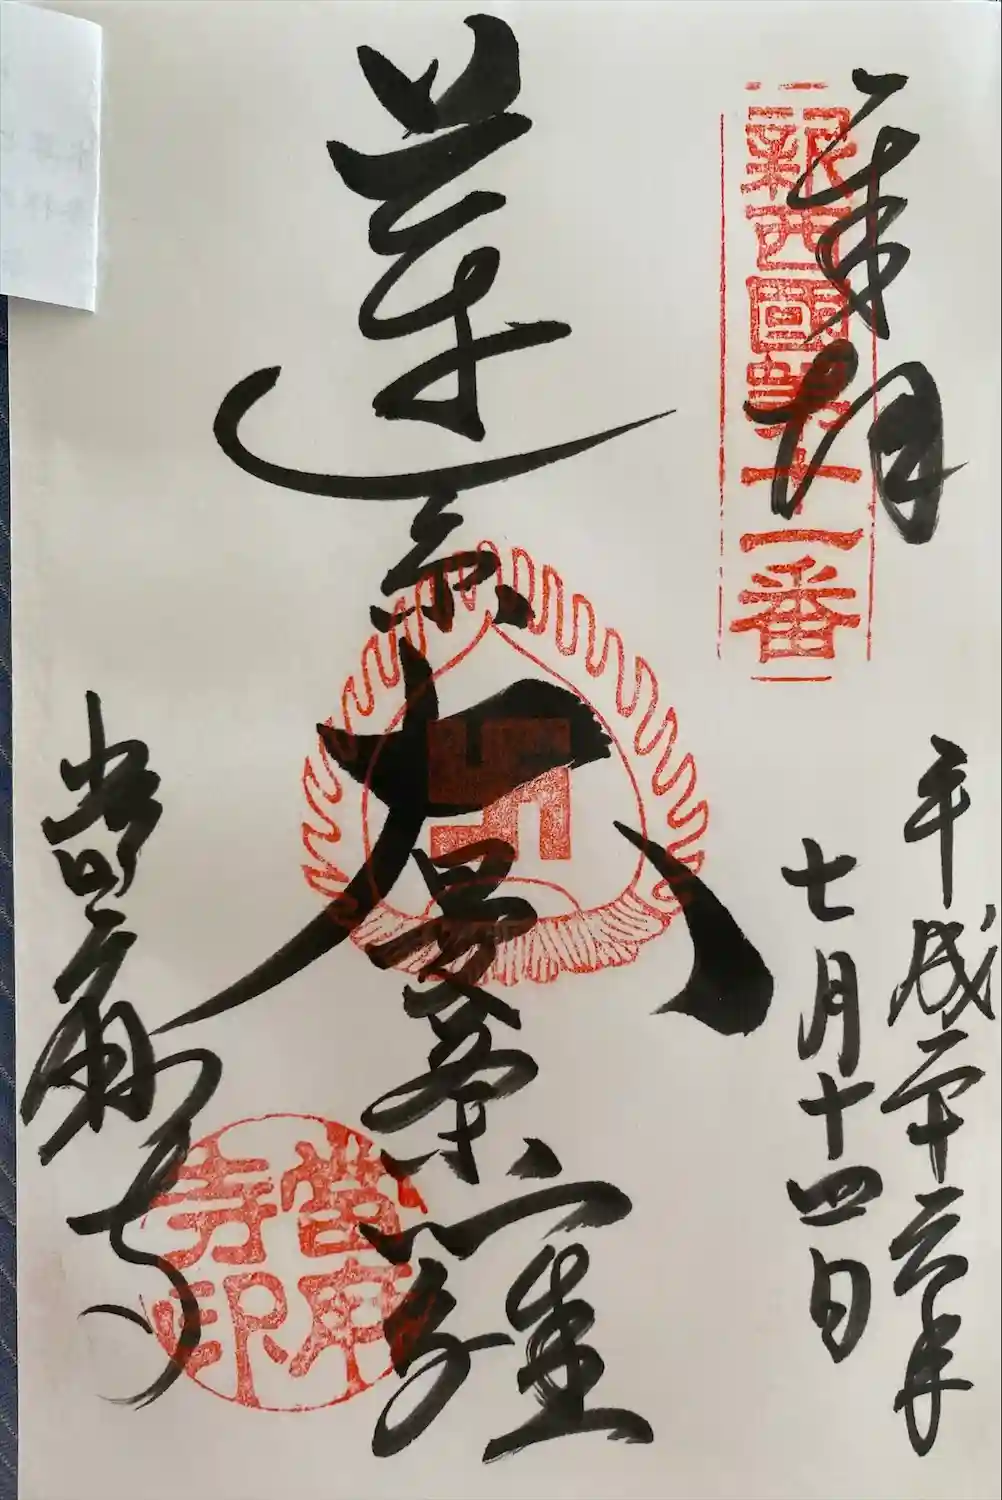 奉拝
新西國第十一番
平成二十六年
七月十四日
蓮糸大曼荼羅
卍
當麻寺
當麻寺印